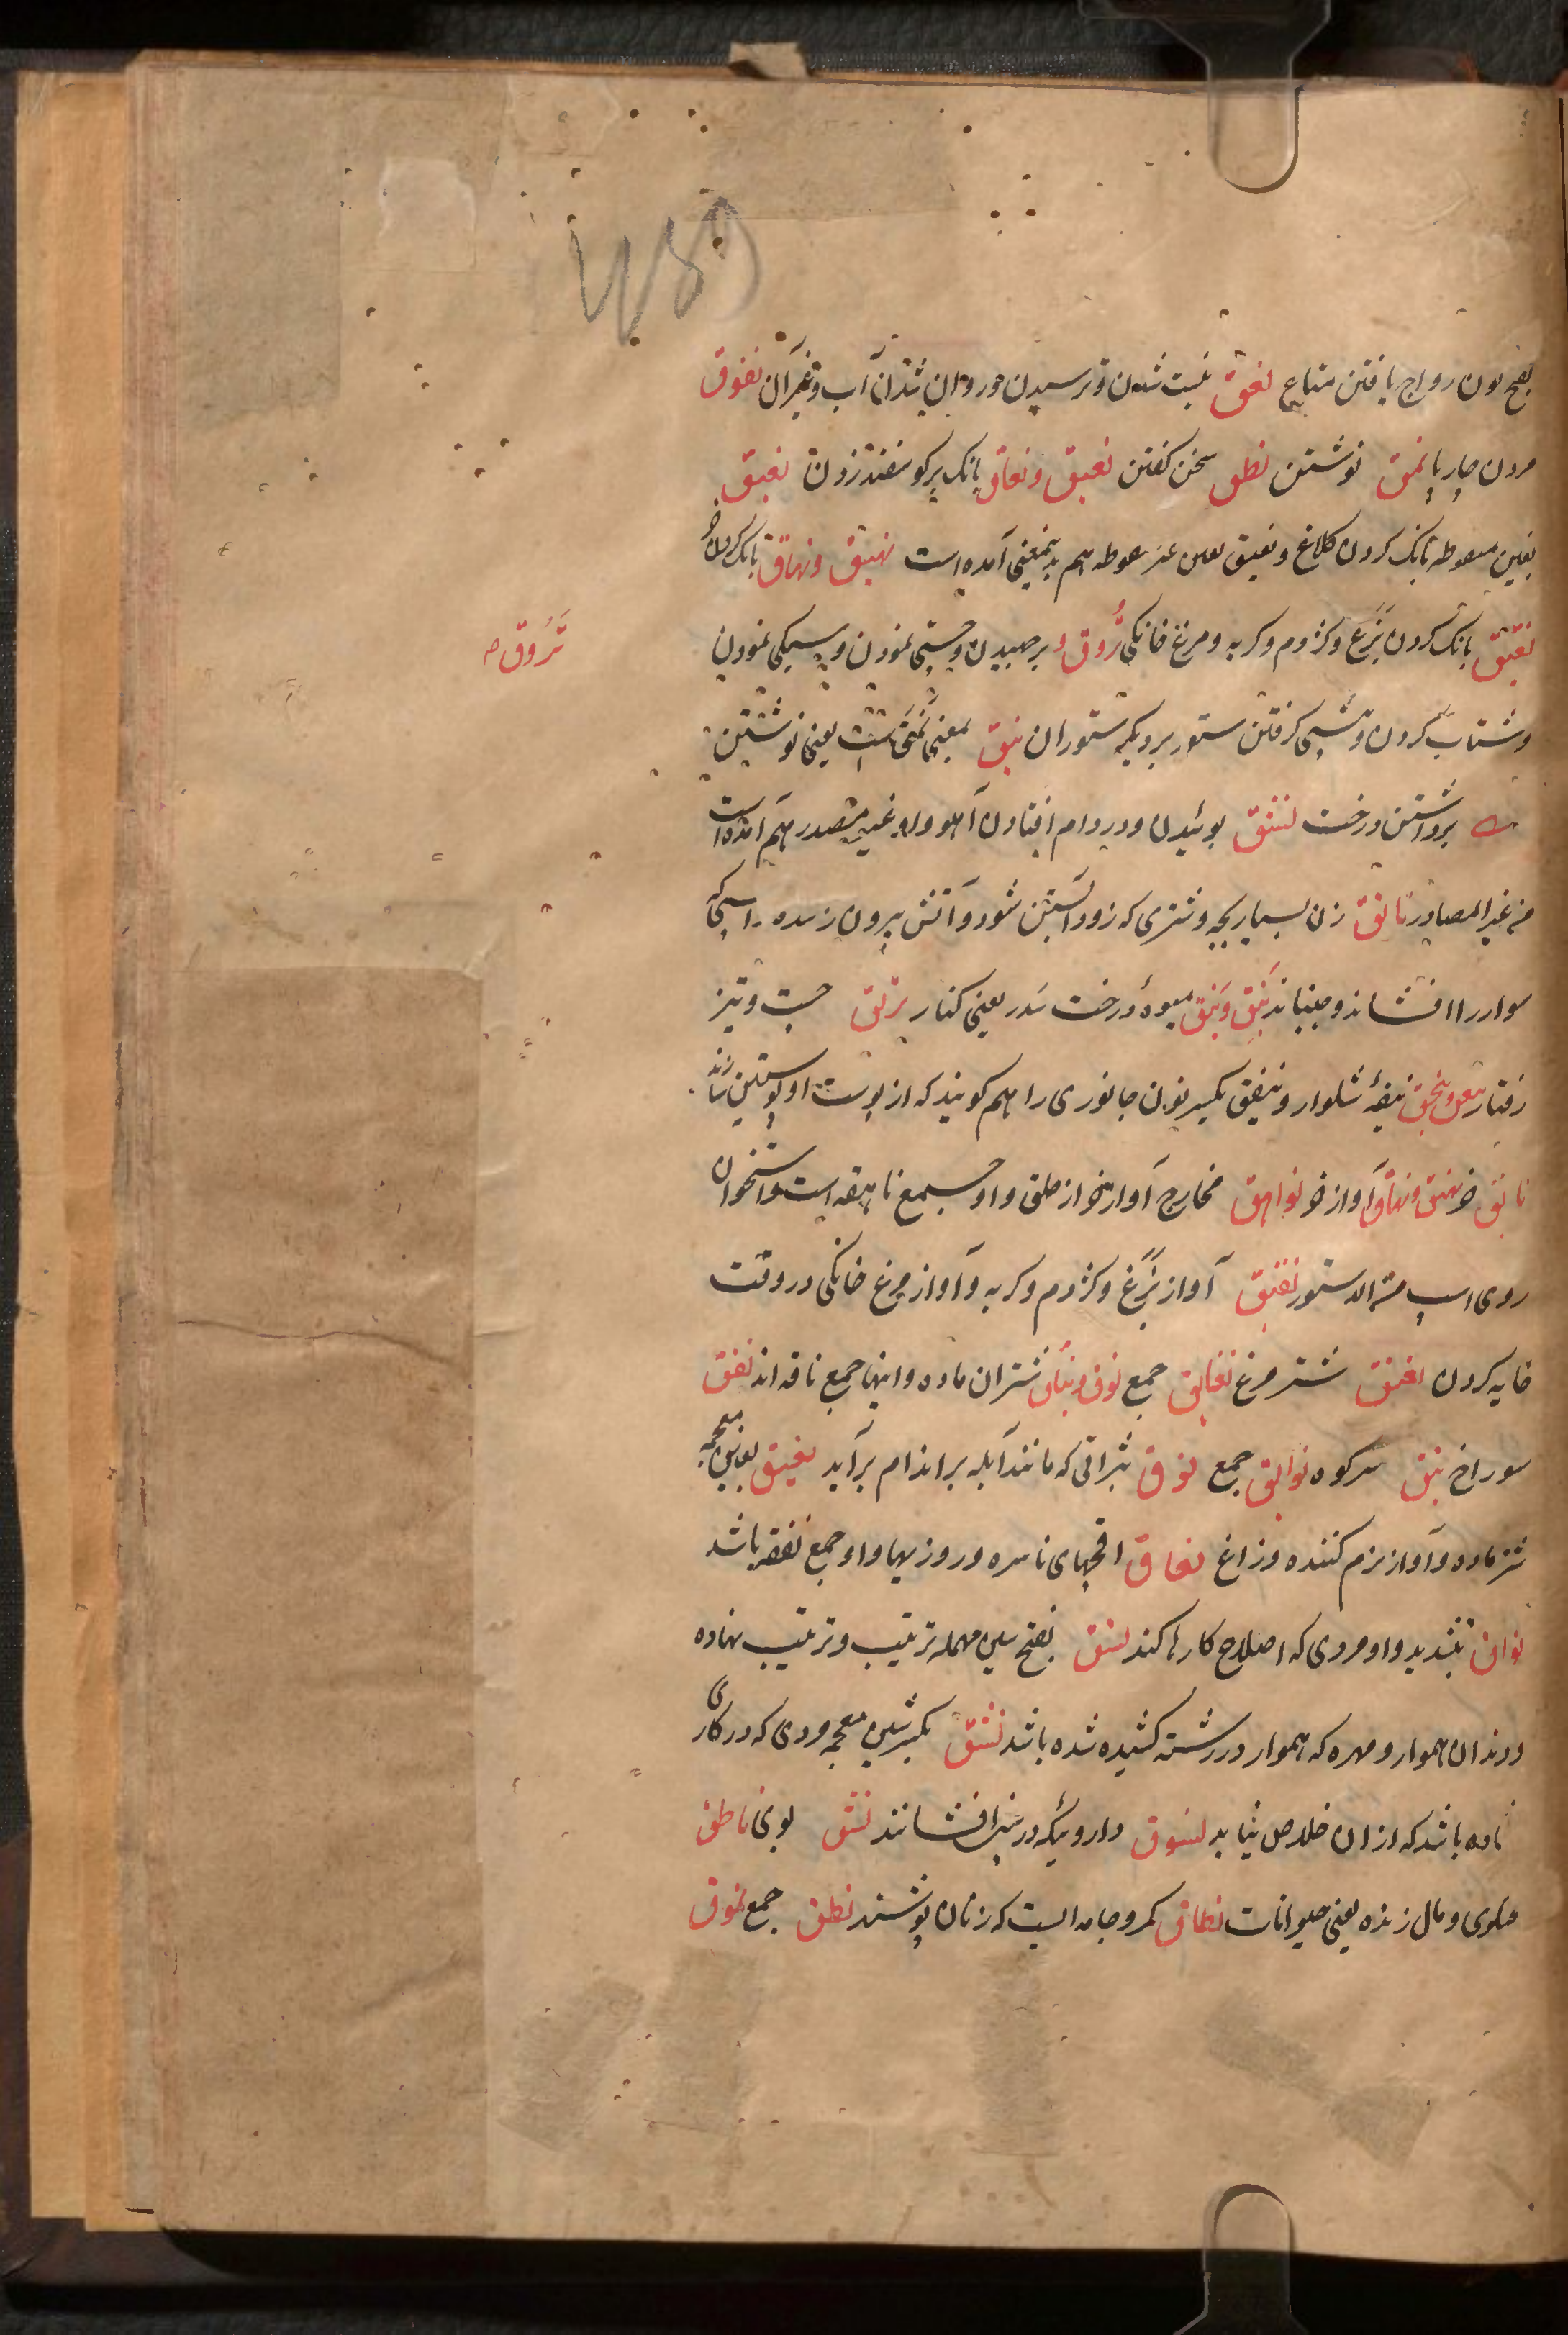 بفتح نون رواج یافتن متاع نفق نیست شدن و ترسیدن و روان شدن آب و غیر آن نفوق
مردن چارپا نمق نوشتن نطق سخن گفتن نعیق و نعاق بانک بر گوسفند زدن نغیق
بغین منقوطه بانک کردن کلاغ و نعیق بعین غیر منقوطه هم بدینمعنی آمده است نهیق و نهاق بانک کردن خر
نقیق بانک کردن بزغ و کژدم و گربه و مرغ خانگی نزوق بر جهیدن و چستی نمودن و سبکی نمودن
نزوق صح
و شتاب کردن و پیشی گرفتن ستور بر دیگر ستوران نبق بمعنی نمق است یعنی نوشتن
برداشتن درخت نشق بوئیدن و در دام افتادن آهو و او غیر مصدر هم آمده است
من غیر المصادر ناتق زن بسیار بچه و شتری که زود آبستن شود و آتش بیرون زننده و اسبی که
سوار را افشاند و جنباند نبق و نبق میوهٔ درخت سدر یعنی کنار نزق چست و تیز
رفتار نیفق نیفهٔ شلوار و نیفق بکسر نون جانوری را هم گویند که از پوست او پوستین سازند
ناهق خر نهیق و نهاق آواز خر نواهق مخارج آواز خر از حلق و او جمع ناهقه است و استخوان
روی اسپ من الدستور نقیق آواز بزغ و کژدم و گربه و آواز مرغ خانگی در وقت
خایه کردن نغنق شتر مرغ نقانق جمع نوق و نیاق شتران ماده و اینها جمع ناقه اند نفق
سوراخ نیق سر کوه نوابق جمع نوق بثراتی که مانند آبله بر اندام برآید نغیق بغین معجمه
شتر ماده و آواز نرم کننده و زاغ نفاق اقچهای ناسره و روزیها و او جمع نفقه باشد
نواق بتشدید واو مردی که اصلاح کارها کند نسق بفتح سین مهمله ترتیب و ترتیب نهاده
و دندان هموار و مهره که هموار در رشته کشیده شده باشد نشق بکسر شین معجمه مردی که در کاری
افتاده باشد که از آن خلاص نیابد نشوق داروئیکه در بینی افشانند نشق بوی ناطق
حلوی و مال زنده یعنی حیوانات نطاق کمر و جامه ایست که زنان پوشند نطق جمع نموق